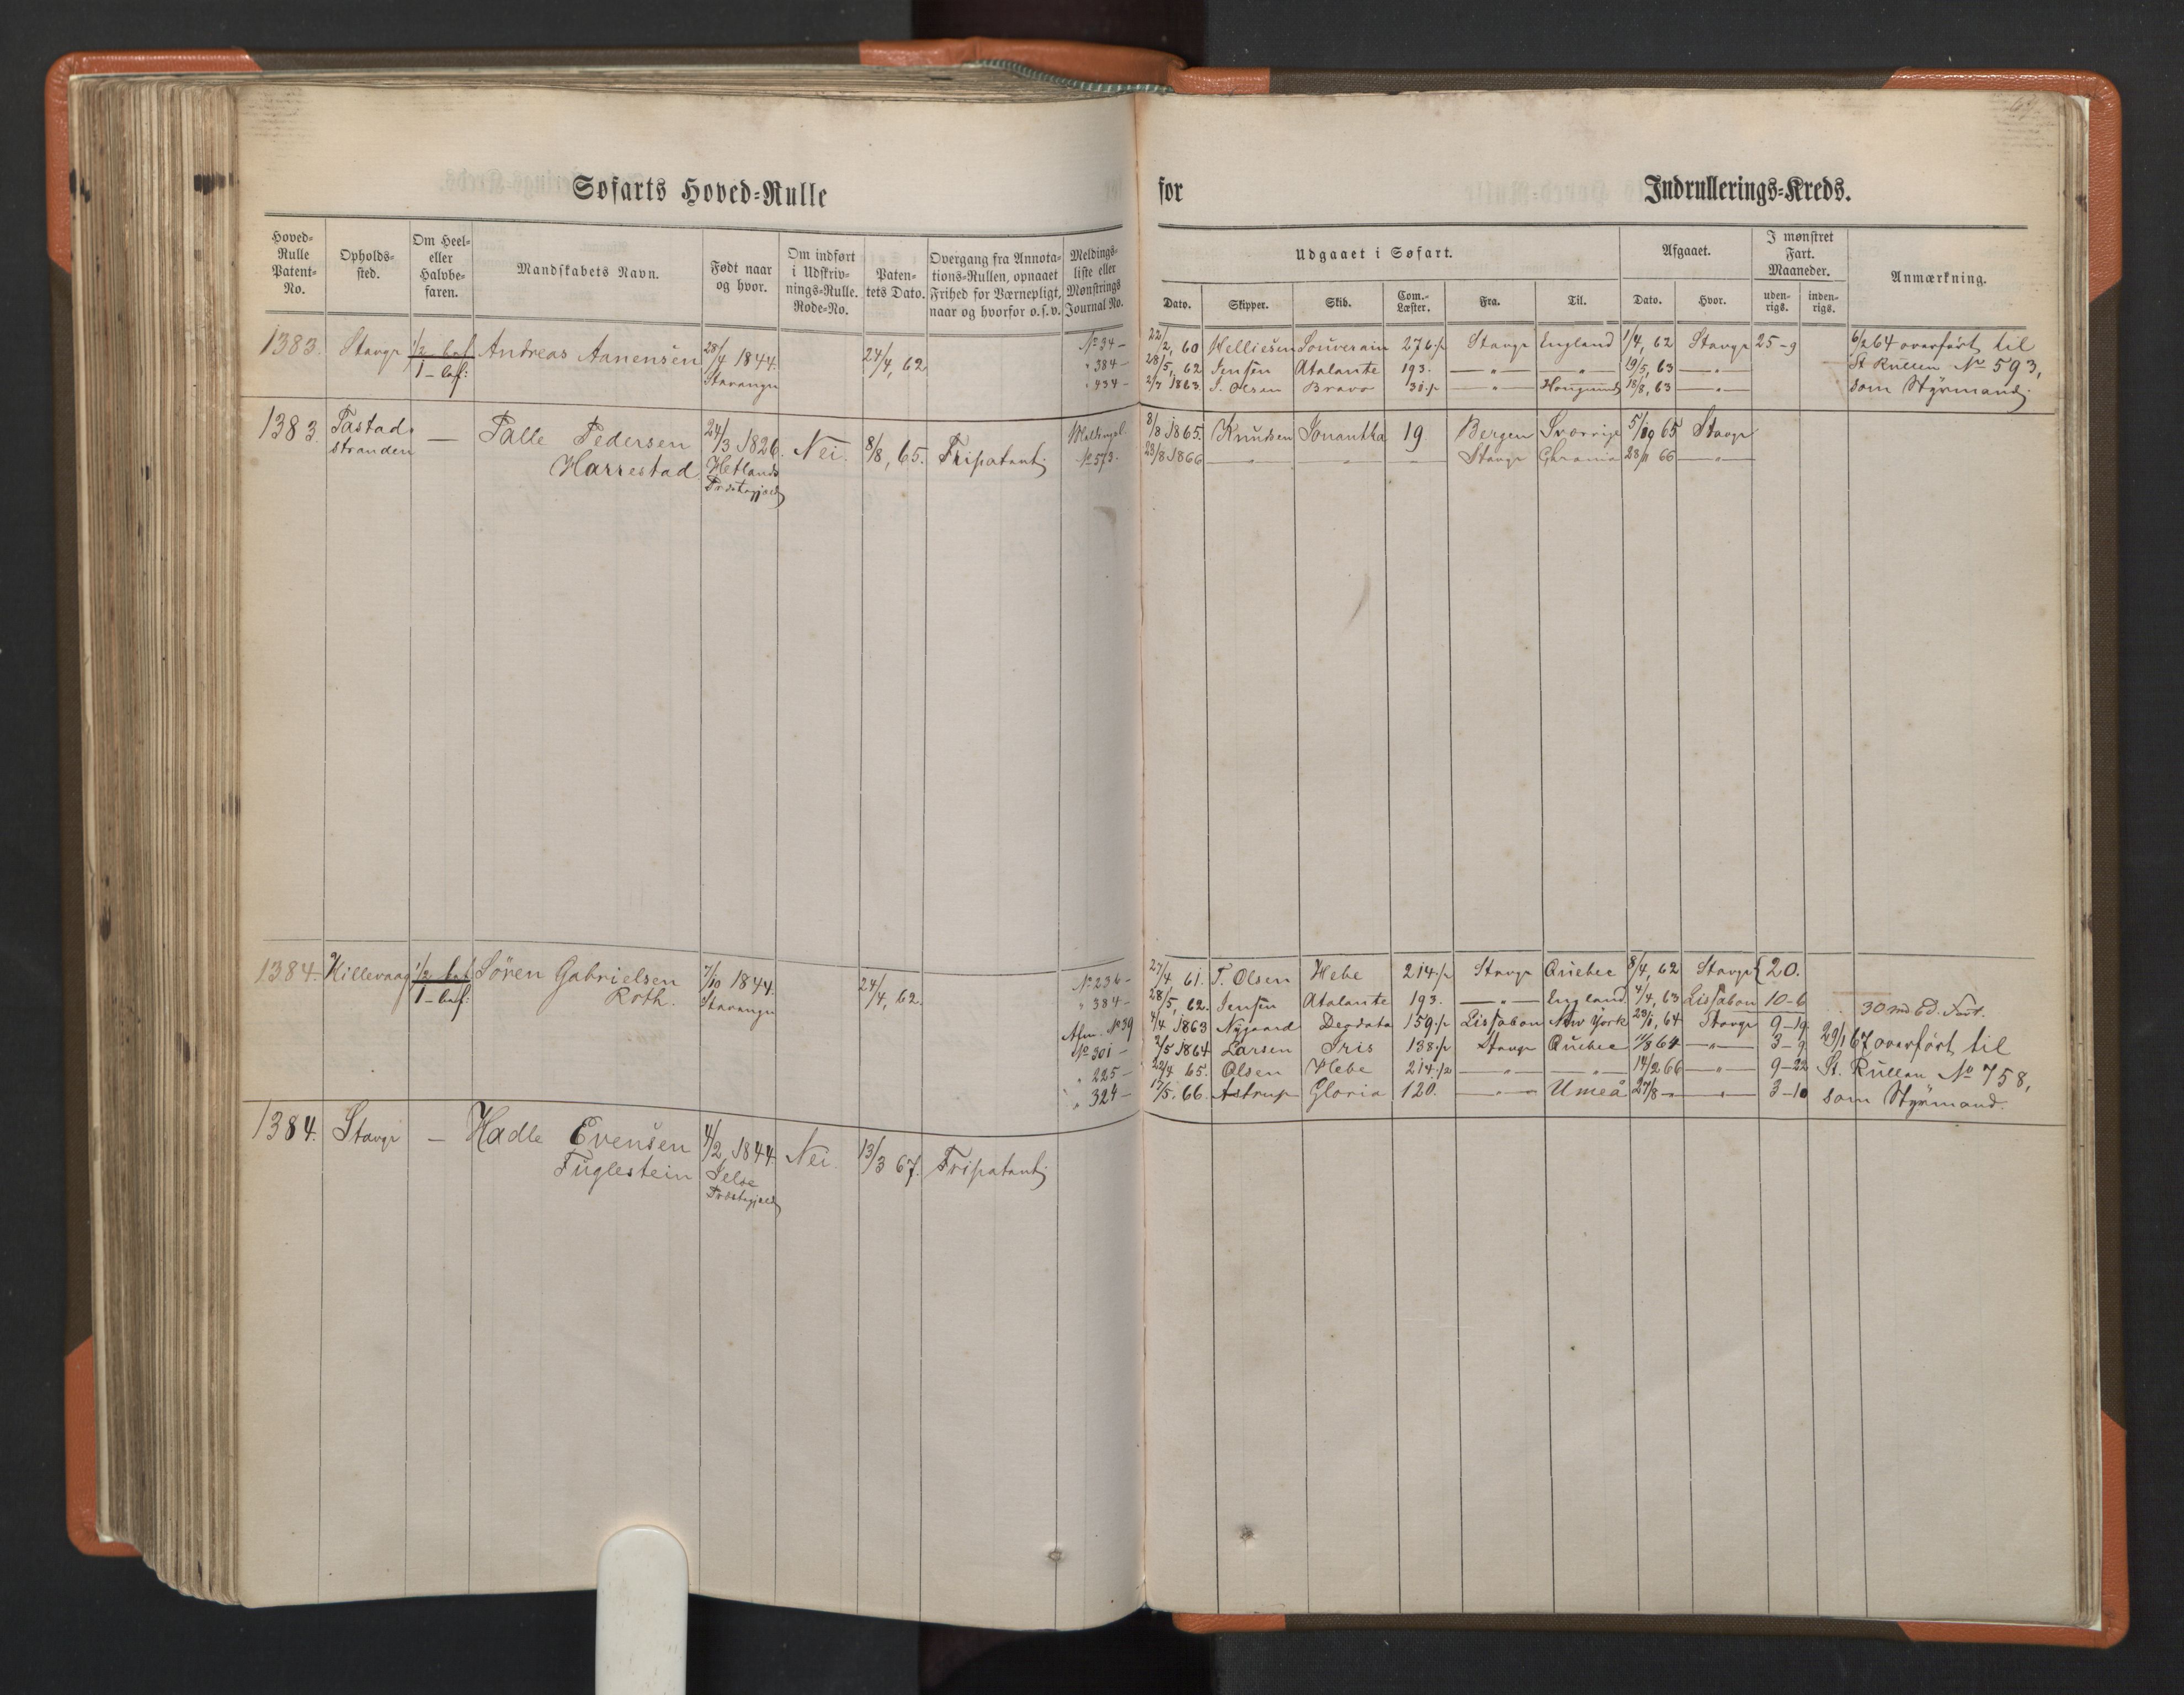 Søfarts Hoved-Rulle
for Indrullerings-Kreds.
Hoved-Rulle Patent-No. Opholds-sted. Om Heel- eller Halvbe-faren. Mandskabets Navn. Født naar og hvor. Om indført i Udskriv-nings-Rulle. Rode-No. Paten-tets Dato. Overgang fra Annota-tions-Rullen, opnaaet Frihed for Værnepligt, naar og hvorfor o.s.v. Meldings-liste eller Mønstrings Journal No.
Udgaaet i Søfart. Afgaaet. I mønstret Fart. Maaneder. Anmærkning.
Dato. Skipper. Skib. Com.-Læster. Fra. Til. Dato. Hvor. uden-rigs. inden-rigs.
1383. Stavgr 1/2 bef Andreas Aanensen 28/4 1844. 24/4, 62. No 34 –
1 – bef: Stavanger " 384 –
" 434 –
22/2, 60 Helliesen Souverain 276 Stavgr England 1/4, 62 Stavgr 25-9 6/2 64 overført til
28/5, 62 Jensen Atalante 193. — " — — " — 19/5, 63 — " — St Rullen No 593,
2/7 1863. J. Olsen Bravo 30 — " — 18/8, 63 — " — som Styrmand.
1383. Tastad- — Palle Pedersen 24/3 1826. Nei. 8/8, 65. Fripatent.
stranden Harrestad Hetlands No 573.
Præstegjæld
8/8 1865. Knudsen Jonantha 19 Bergen Sverrige 65 Stavgr
23/8 1866 — " — Stavgr 66 — " —
1384. Hillevaag 1/2 bef Søren Gabrielsen 7/10 1844. 24/4, 62. No 236 –
1 – bef: Roth. Stavanger " 384 –
No 39
No 301 –
" 225 –
" 324 –
27/4, 61. T. Olsen Hebe 214 Stavgr Quebec 8/4, 62 Stavgr 20.
28/5, 62. Jensen Atalante 193. — " — England. 4/4, 63 Lissabon 10-6 30 md 6 d. Fart.
4/4 1863 Nygaard Deodata 159 Lissabon New York 64 Stavgr 9-19 29/1 67 overført til
2/5 1864 Larsen Iris 138 Stavgr Quebec 64 — " — 3-9
22/4 65. Olsen Hebe 214 — " — — " — 14/2 66 — " — 9-22 St. Rullen No 758,
17/5. 66. Astrup Gloria 120. — " — Umeå 27/8 — " — 3-10 som Styrmand.
1384. Stavgr — Hadle Evensen 4/2, 1844. Nei. 13/3 67. Fripatent.
Fuglestein Jelse
Præstegjæld